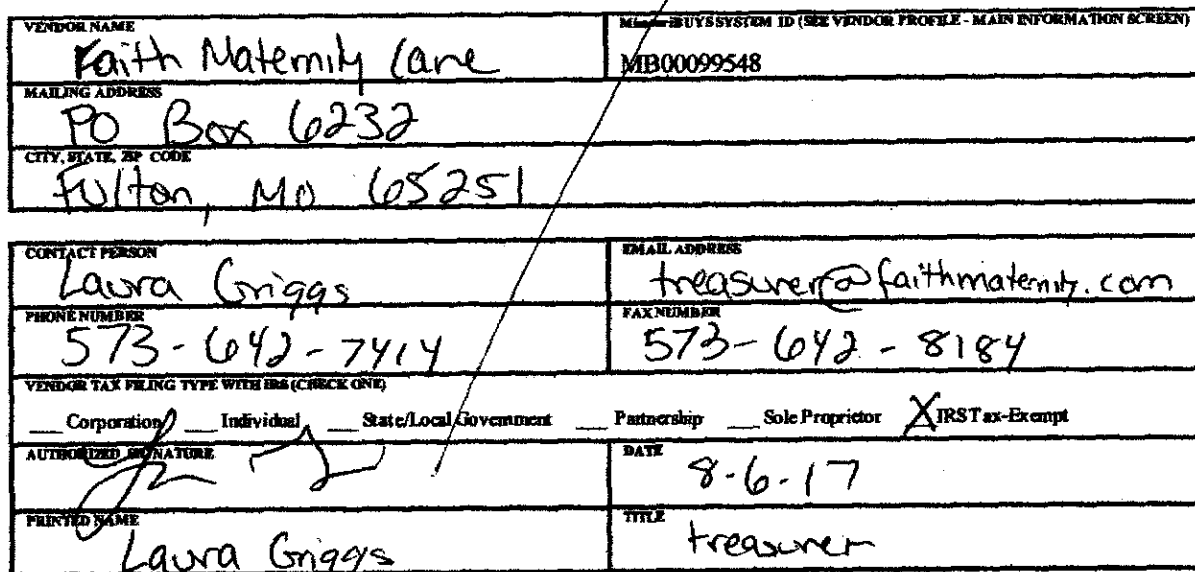 VENDOR NAME
Faith Maternity Care
BUYS SYSTEM ID (SEE VENDOR PROFILE - MAIN INFORMATION SCREEN)
MB00099548
MAILING ADDRESS
PO Box 6232
CITY, STATE, ZIP CODE
Fulton, MO 65251
CONTACT PERSON
Laura Griggs
EMAIL ADDRESS
treasurer@faithmaternity.com
PHONE NUMBER
573-642-7414
FAX NUMBER
573-642-8184
VENDOR TAX FILING TYPE WITH IRS (CHECK ONE)
__ Corporation __ Individual __ State/Local Government __ Partnership __ Sole Proprietor X IRS Tax-Exempt
AUTHORIZED SIGNATURE
DATE
8-6-17
PRINTED NAME
Laura Griggs
TITLE
treasurer